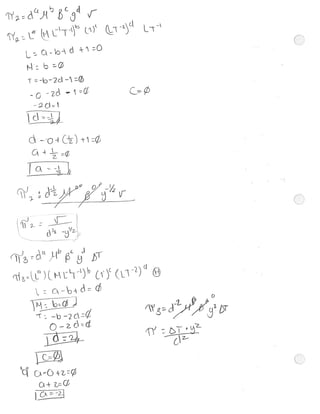 π₂ = dᵃ μᵇ βᶜ gᵈ v
π₂ = Lᵃ (M L⁻¹T⁻¹)ᵇ (1)ᶜ (LT⁻²)ᵈ LT⁻¹
L = a - b + d + 1 = 0
M = b = 0
T = -b - 2d - 1 = 0
C = 0
-0 - 2d - 1 = 0
-2d = 1
d = -1/2
a - 0 + (1/2) + 1 = 0
a + 1/2 = 0
a = -1/2
π₂ : d^-1/2 μ⁰ β⁰ g^-1/2 v
π₂ = v / d^1/2 · g^1/2
π₃ = dᵃ μᵇ βᶜ gᵈ ΔT
π₃ = (Lᵃ)(ML⁻¹T⁻¹)ᵇ (1)ᶜ (LT⁻²)ᵈ Θ
L = a - b + d = 0
M: b = 0
T: -b - 2d = 0
0 - 2d = 0
d = 2
C = 0
a - 0 + 2 = 0
a + 2 = 0
a = -2
π₃ = d⁻² μ⁰ β⁰ g² ΔT
π = ΔT · g² / d²